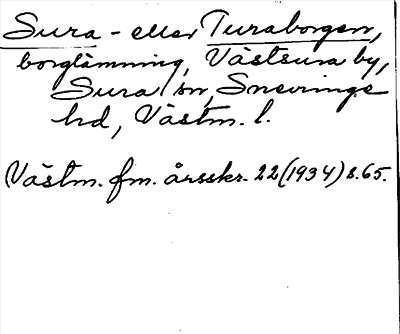 Sura- eller Turaborgen,
borglämning, Västsura by,
Sura sn, Snevringe
hd, Västm. l.
Västm. fm. årsskr. 22 (1934) s. 65.